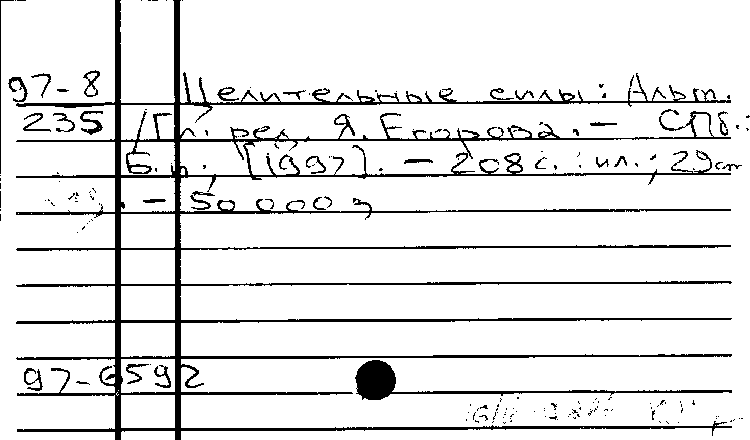 97-8 Целительные силы: Альм.
235 /Гл. ред. Я. Егорова. — СПб.:
Б.и., [1997]. — 208 с.: ил.; 29 см
. — 50 000 э
97-6592